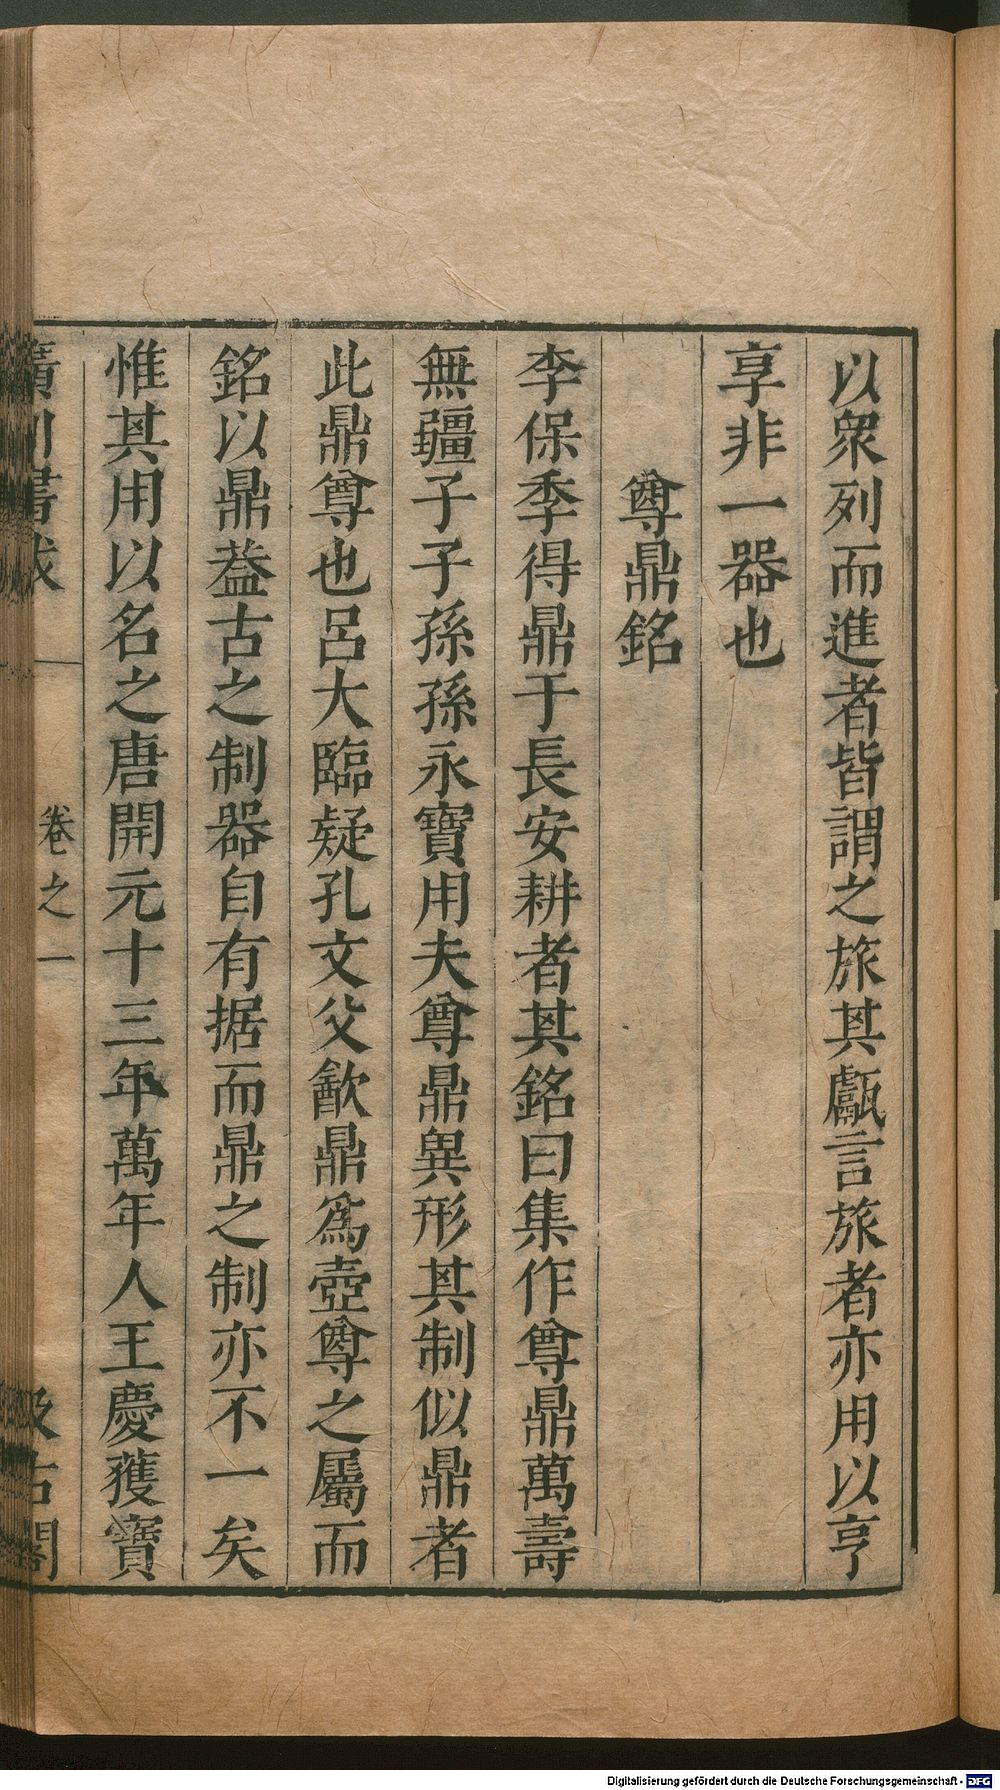 以衆列而進者皆謂之旅其甗言旅者亦用以亨
享非一器也
尊鼎銘
李保季得鼎于長安耕者其銘曰集作尊鼎萬壽
無疆子子孫孫永寶用夫尊鼎異形其制似鼎者
此鼎尊也呂大臨疑孔文父歠鼎爲壺尊之屬而
銘以鼎葢古之制器自有据而鼎之制亦不一矣
惟其用以名之唐開元十三年萬年人王慶獲寶
廣川書跋
卷之一
汲古閣
Digitalisierung gefördert durch die Deutsche Forschungsgemeinschaft - DFG